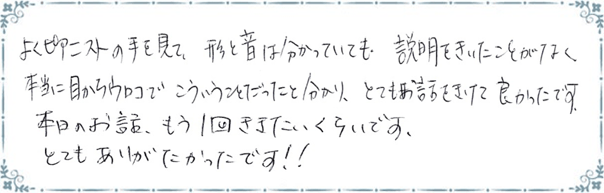 よくピアニストの手を見て、形と音は分かっていても、説明をきいたことがなく
本当に目からウロコでこういうことだったと分かり、とてもお話をきけて良かったです。
本日のお話、もう1回ききたいくらいです。
とてもありがたかったです!!